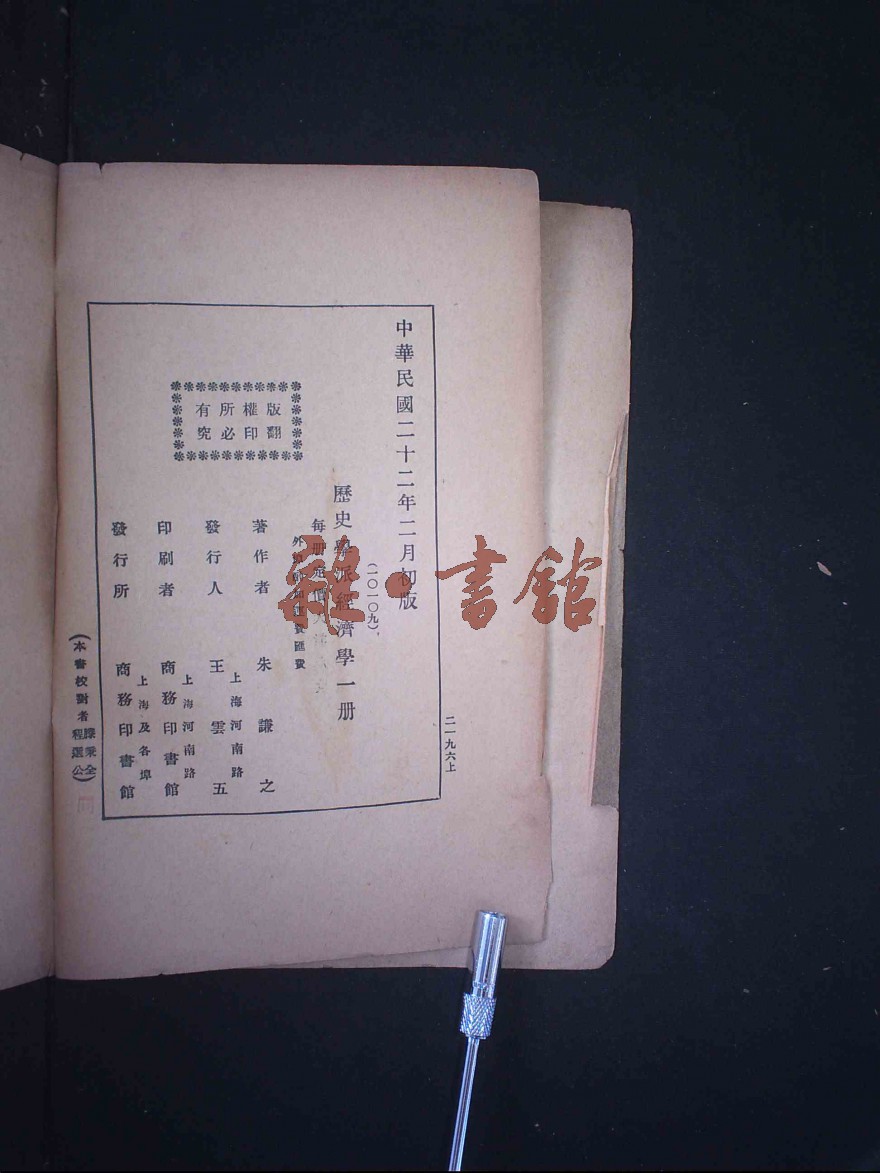 中華民國二十二年二月初版
(一〇一〇九)
歷史學派經濟學一册
每册定價大洋
外埠酌加運費匯費
版權所有
翻印必究
著作者 朱謙之
發行人 王雲五
上海河南路
印刷者 商務印書館
上海河南路
發行所 商務印書館
上海及各埠
(本書校對者 程選公)
二一九六上
雜·書館